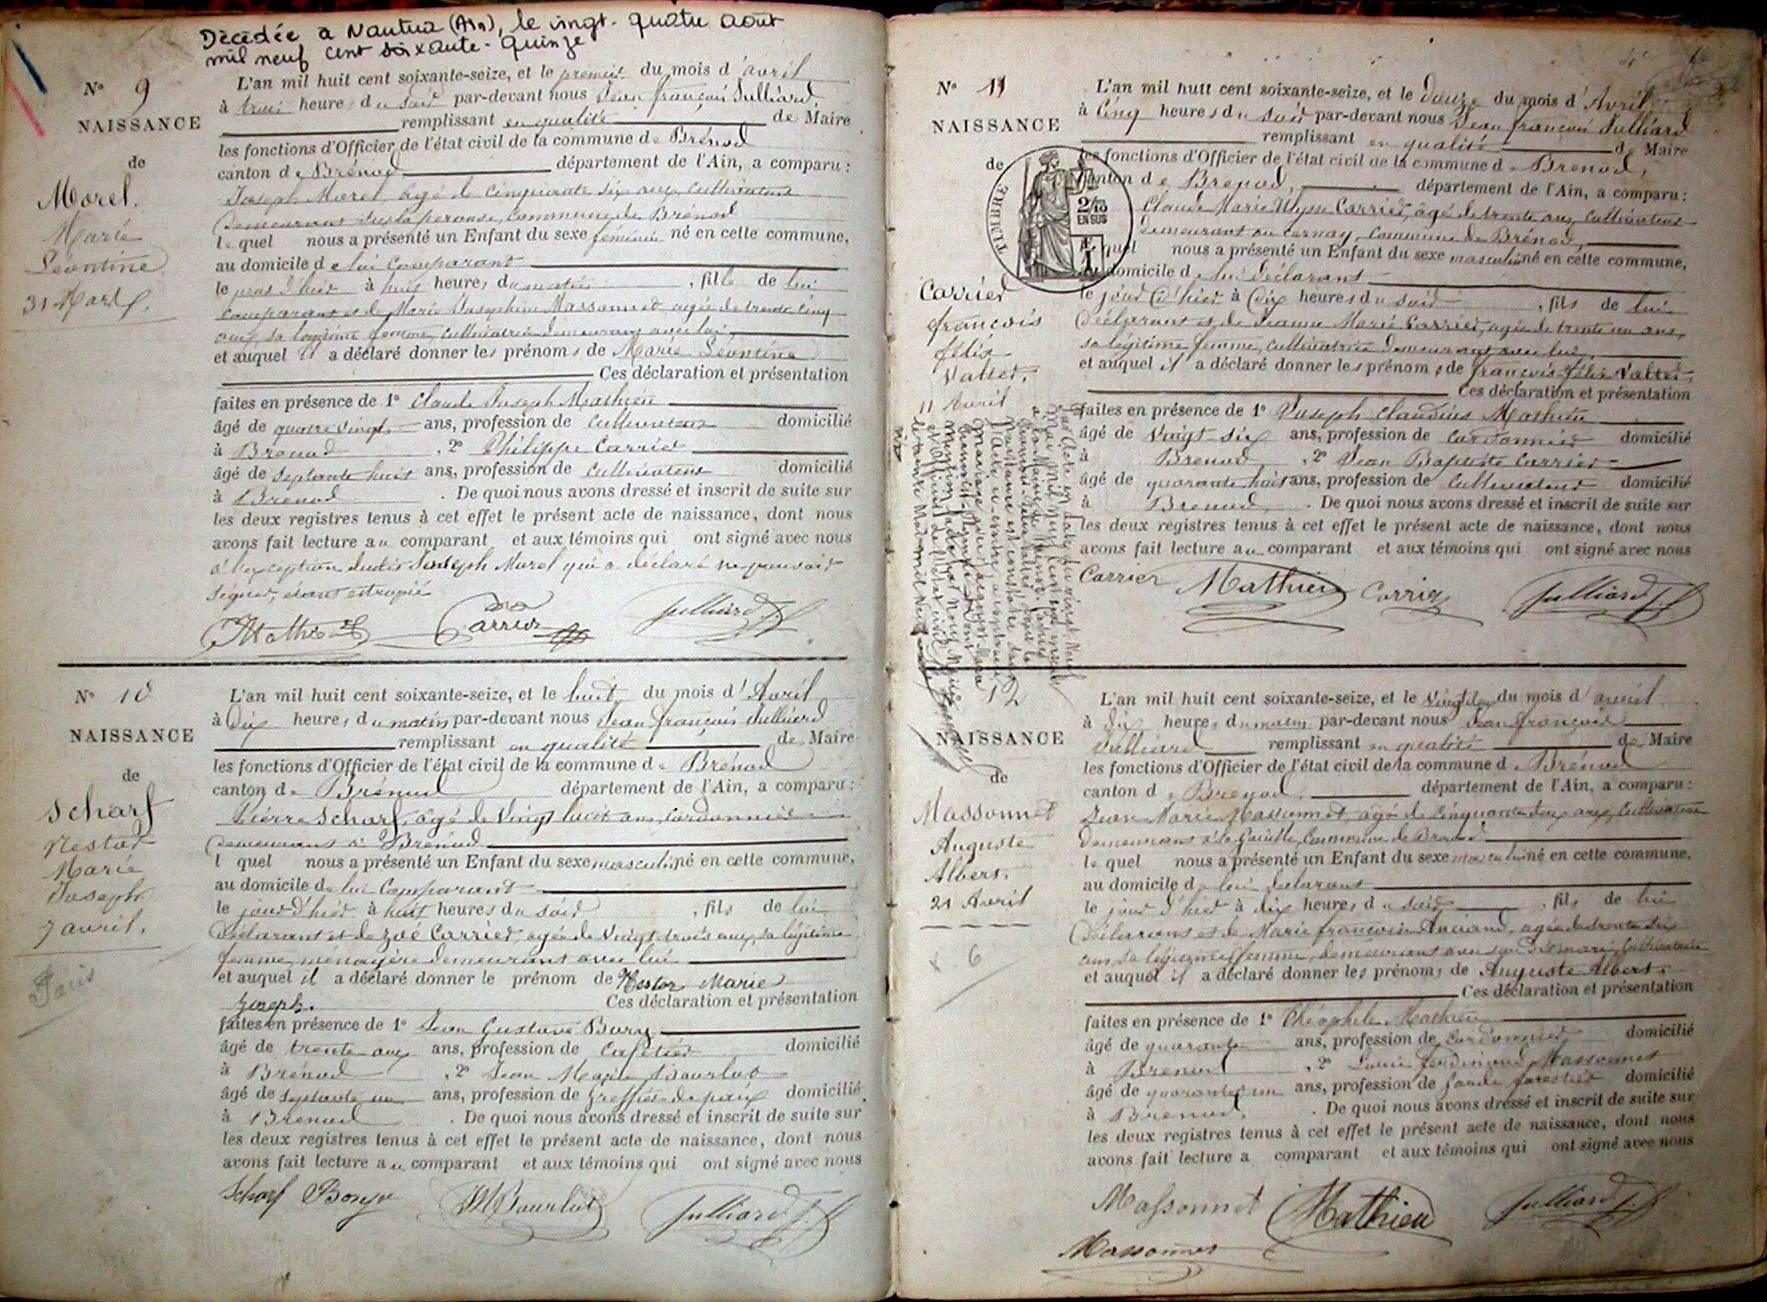 Décédée à Nantua (Ain), le vingt-quatre août
mil neuf cent soixante-quinze
N° 9
NAISSANCE
de
Morel.
Marie
Léontine
31 Mars
L'an mil huit cent soixante-seize, et le premier du mois d'avril
à trois heures du soir par-devant nous Jean françois Julliard
remplissant en qualité de Maire
les fonctions d'Officier de l'état civil de la commune de Brénod
canton de Brénod département de l'Ain, a comparu :
Joseph Morel âgé de cinquante six ans, cultivateur
demeurant commune de Brénod
lequel nous a présenté un Enfant du sexe féminin né en cette commune,
au domicile de lui comparant
le jour d'hier à huit heures du matin, fille de lui
comparant et de Marie Josephine Massonnet, agée de trente cinq
ans, sa légitime femme, cultivatrice demeurant avec lui
et auquel il a déclaré donner les prénoms de Marie Léontine
Ces déclaration et présentation
faites en présence de 1° Claude Joseph Mathieu
âgé de quatre vingt ans, profession de cultivateur domicilié
à Brenod, 2° Philippe Carrier
âgé de septante huit ans, profession de cultivateur domicilié
à Brenod. De quoi nous avons dressé et inscrit de suite sur
les deux registres tenus à cet effet le présent acte de naissance, dont nous
avons fait lecture au comparant et aux témoins qui ont signé avec nous
à l'exception dudit Joseph Morel qui a déclaré ne pouvoir
signer, étant estropié
Mathieu Carrier Julliard J. f.
N° 10
NAISSANCE
de
Scharf
Nestor
Marie
Joseph
7 avril.
Paris
L'an mil huit cent soixante-seize, et le huit du mois d'Avril
à dix heures du matin par-devant nous Jean françois Julliard
remplissant en qualité de Maire
les fonctions d'Officier de l'état civil de la commune de Brénod
canton de Brénod département de l'Ain, a comparu :
Pierre Scharf, âgé de vingt huit ans, cordonnier
demeurant à Brénod
l quel nous a présenté un Enfant du sexe masculin né en cette commune,
au domicile de lui comparant
le jour d'hier à huit heures du soir, fils de lui
déclarant et de Zoé Carrier, agée de vingt trois ans, sa légitime
femme, ménagère demeurant avec lui
et auquel il a déclaré donner le prénom de Nestor Marie
Joseph. Ces déclaration et présentation
faites en présence de 1° Jean Gustave
âgé de trente ans ans, profession de cafetier domicilié
à Brénod, 2° Jean Marie Bourlot
âgé de septante un ans, profession de greffier de paix domicilié
à Brenod. De quoi nous avons dressé et inscrit de suite sur
les deux registres tenus à cet effet le présent acte de naissance, dont nous
avons fait lecture au comparant et aux témoins qui ont signé avec nous
Scharf JM Bourlot Julliard J. f.
N° 11
NAISSANCE
de
TIMBRE
2/10
EN SUS
Carrier
françois
félix
Valter.
11 Avril
L'an mil huit cent soixante-seize, et le douze du mois d'Avril
à cinq heures du soir par-devant nous Jean françois Julliard
remplissant en qualité de Maire
les fonctions d'Officier de l'état civil de la commune de Brenod,
canton de Brenod, département de l'Ain, a comparu :
Claude Marie Ulysse Carrier, âgé de trente ans, cultivateur
demeurant au Cernay, commune de Brénod,
quel nous a présenté un Enfant du sexe masculin né en cette commune,
au domicile de lui déclarant
le jour d'hier à dix heures du soir, fils de lui
déclarant et de Jeanne Marie Carrier, agée de trente un ans,
sa légitime femme, cultivatrice demeurant avec lui,
et auquel il a déclaré donner les prénoms de françois félix Valter.
Ces déclaration et présentation
faites en présence de 1° Joseph Claudius Mathieu
âgé de vingt six ans, profession de cordonnier domicilié
à Brenod, 2° Jean Baptiste Carrier
âgé de quarante huit ans, profession de cultivateur domicilié
à Brenod. De quoi nous avons dressé et inscrit de suite sur
les deux registres tenus à cet effet le présent acte de naissance, dont nous
avons fait lecture au comparant et aux témoins qui ont signé avec nous
Carrier Mathieu Carrier Julliard J. f.
12
NAISSANCE
de
Massonnet
Auguste
Albert.
21 Avril
6
L'an mil huit cent soixante-seize, et le vingt deux du mois d'avril
à dix heures du matin par-devant nous Jean françois
Julliard remplissant en qualité de Maire
les fonctions d'Officier de l'état civil de la commune de Brénod
canton de Brenod, département de l'Ain, a comparu :
Jean Marie Massonnet, âgé de cinquante deux ans, cultivateur
demeurant à la Gouille, Commune de Brenod
lequel nous a présenté un Enfant du sexe masculin né en cette commune,
au domicile de lui déclarant
le jour d'hier à dix heures du soir, fils de lui
déclarant et de Marie françoise Anciand, agée de trente six
ans, sa légitime femme, demeurant avec son dit mari, cultivatrice
et auquel il a déclaré donner les prénoms de Auguste Albert.
Ces déclaration et présentation
faites en présence de 1° Théophile Mathieu
âgé de quarante ans, profession de cordonnier domicilié
à Brenod, 2° Louis ferdinand Massonnet
âgé de quarante un ans, profession de garde forestier domicilié
à Brenod. De quoi nous avons dressé et inscrit de suite sur
les deux registres tenus à cet effet le présent acte de naissance, dont nous
avons fait lecture a comparant et aux témoins qui ont signé avec nous
Massonnet Mathieu Julliard J. f.
Massonnet